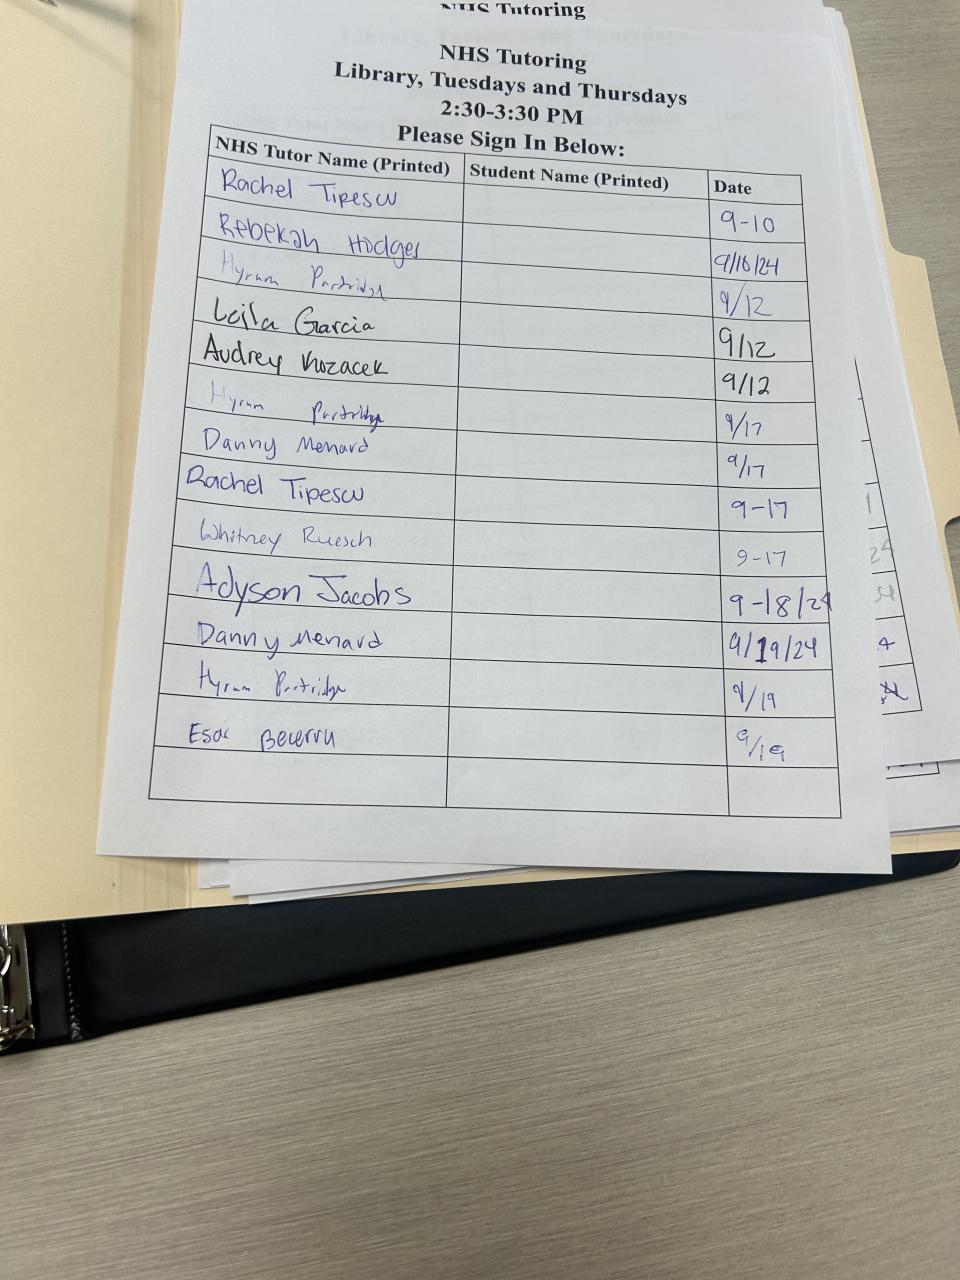 NHS Tutoring
NHS Tutoring
Library, Tuesdays and Thursdays
2:30-3:30 PM
Please Sign In Below:
NHS Tutor Name (Printed) Student Name (Printed) Date
Rachel Tipescu 9-10
Rebekah Hodges 9/10/24
Hyrum Partridge 9/12
Leila Garcia 9/12
Audrey Kozacek 9/12
Hyrum Partridge 9/17
Danny Menard 9/17
Rachel Tipescu 9-17
Whitney Ruesch 9-17
Adyson Jacobs 9-18/24
Danny Menard 9/19/24
Hyrum Partridge 9/19
Becerra 9/19
24